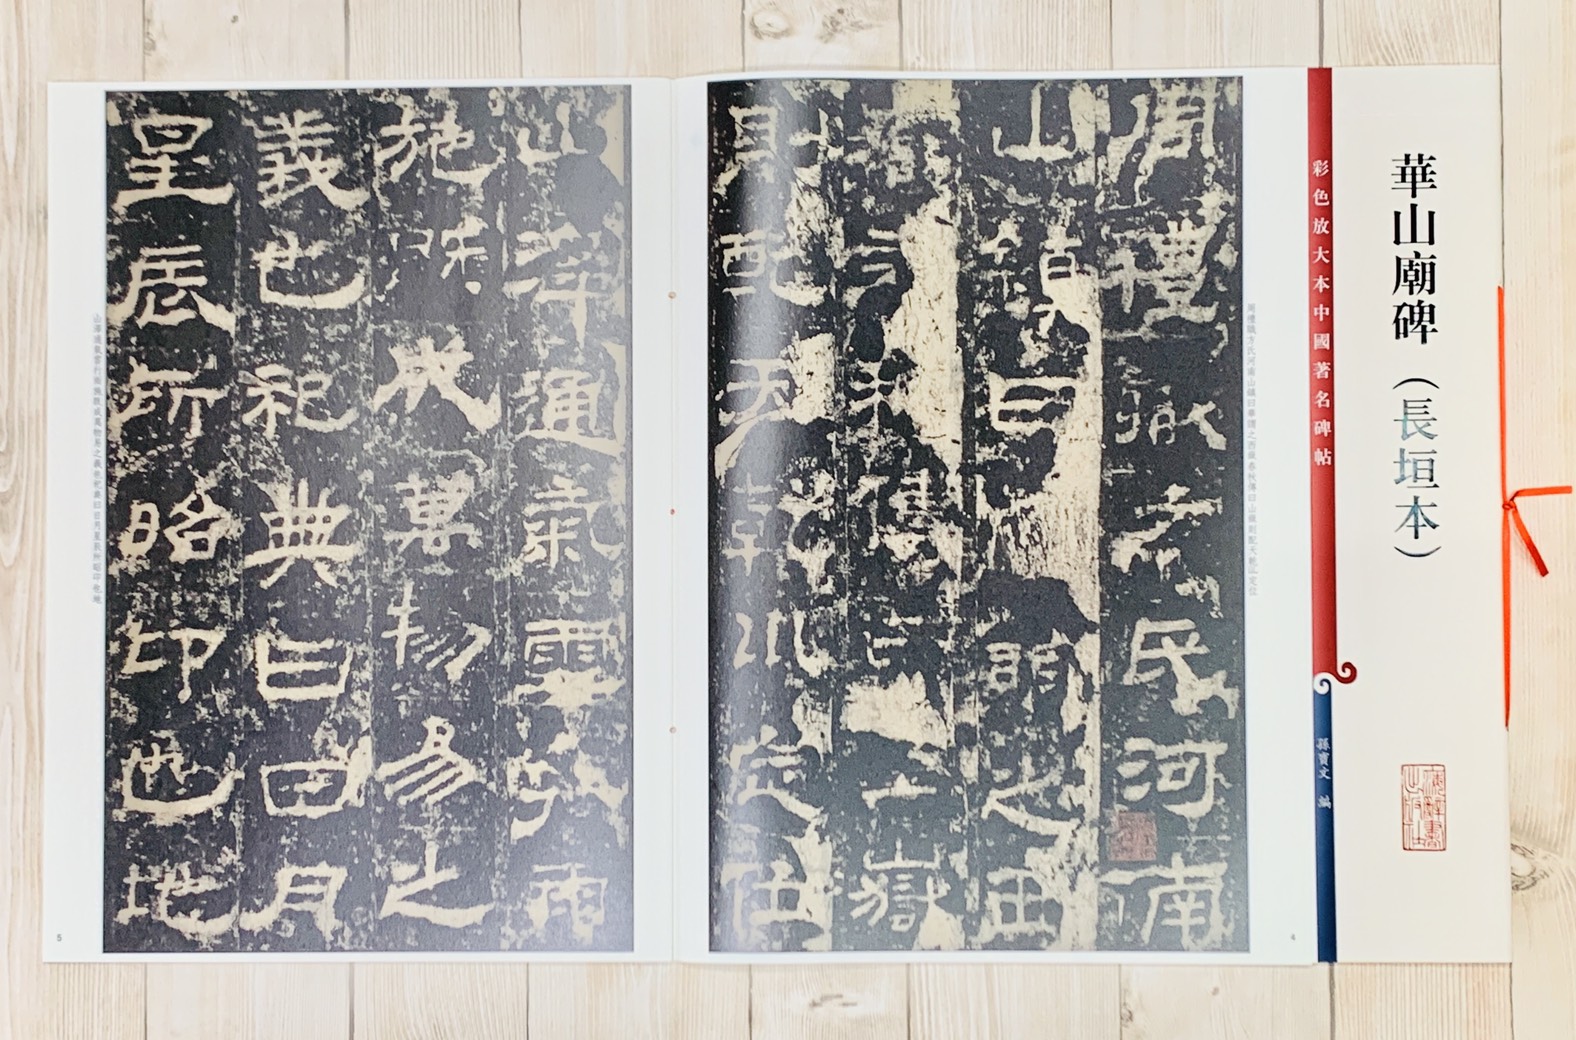 華山廟碑（長垣本）
彩色放大本中國著名碑帖
孫寶文 編
周禮職方氏河南山鎮曰華謂之西嶽春秋傳曰山嶽則配天乾以定位
周禮職方氏河南
山鎮曰華謂之西
嶽春秋傳曰山嶽
則配天乾以定位
4
山澤通氣雲行雨
施既成萬物易之
義也祀典曰日月
星辰所昭卬也地
山澤通氣雲行雨施既成萬物易之義也祀典曰日月星辰所昭卬也地
5